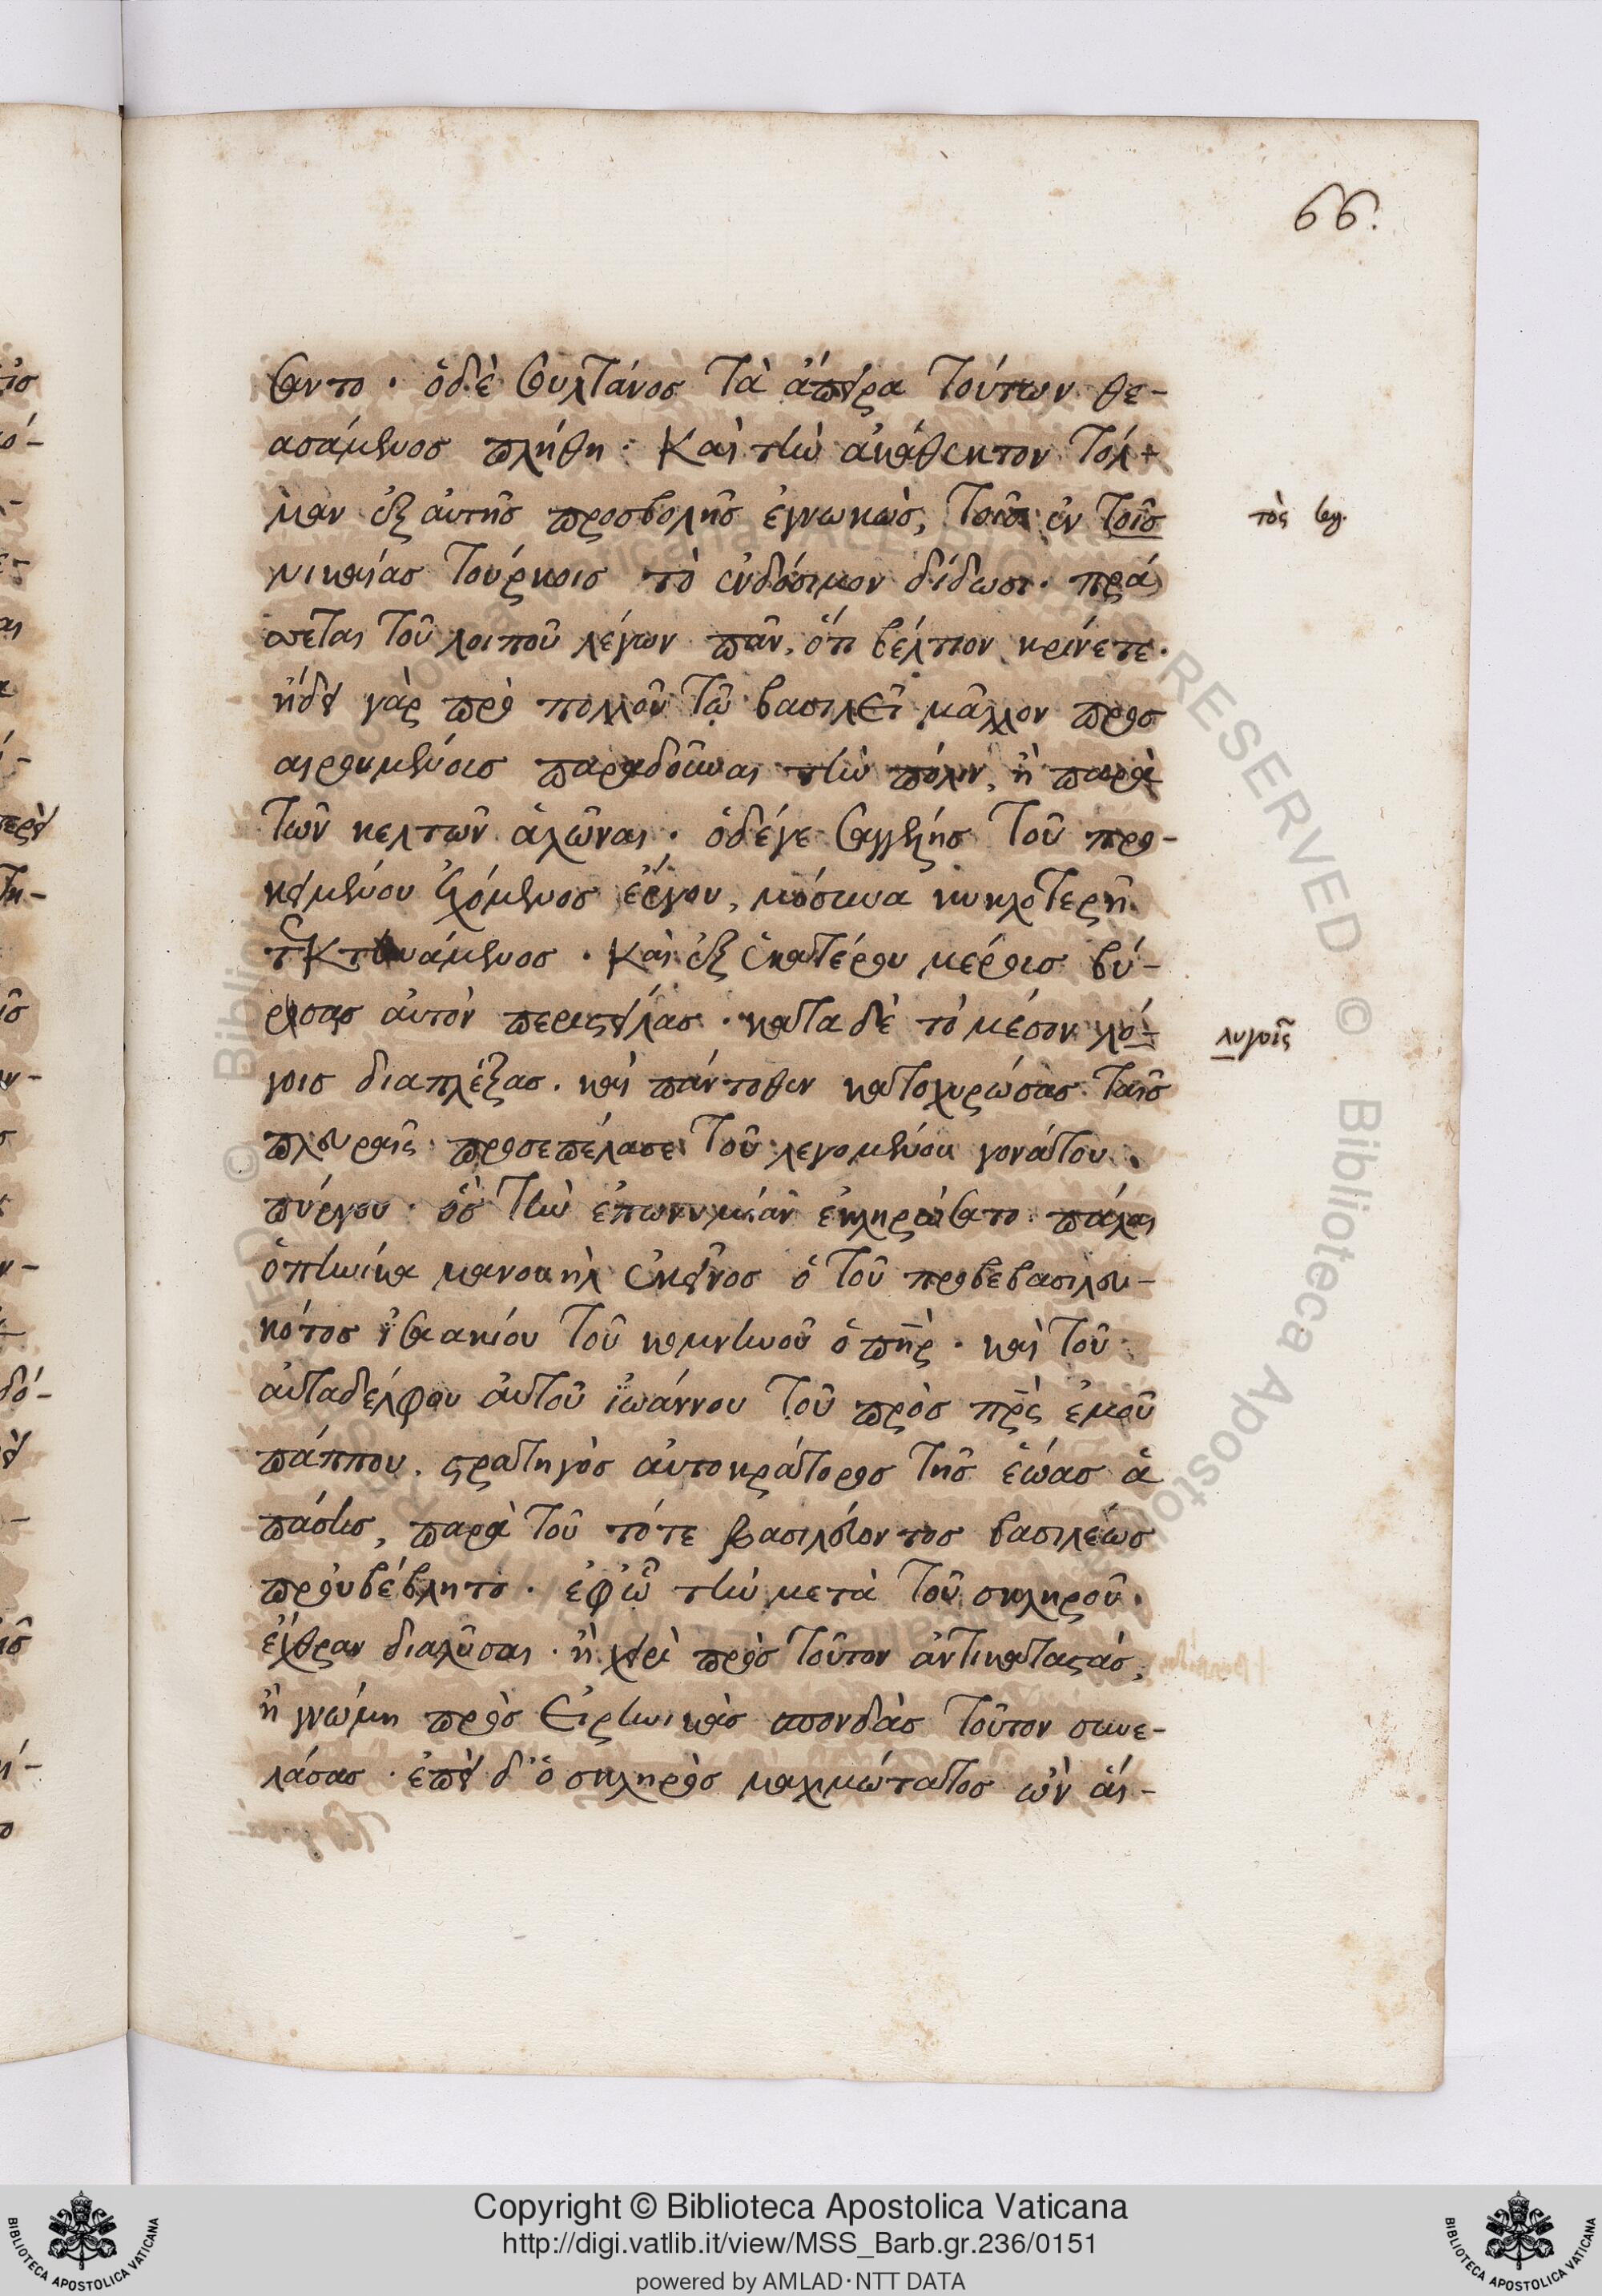 66.
σαντο · ὁδὲ σουλτάνος τὰ ἄπειρα τούτων θε-
ασάμενος πλήθη · καὶ τὴν ἀκάθεκτον τόλ-
μαν ἐξ αὐτῆς προσβολῆς ἐγνωκὼς, τοῖς ἐν τοῖς
τὸς
νικαίας τούρκοις τὸ ἐνδόσιμον δίδωσι · πρά
πετται τοῦ λοιποῦ λέγων πᾶν, ὅτι βέλτιον κρίνετε ·
ἤδει γὰρ πρὸ πολλοῦ τῷ βασιλεῖ μᾶλλον προσ
αιρουμένοις παραδοῦναι τὴν πόλιν, ἢ παρὰ
τῶν κελτῶν ἁλῶναι · ὁδέγε σαγγέλης τοῦ προ-
κειμένου ἐχόμενος ἔργου, μόσυνα κυκλοτερῆ
τεκτηνάμενος · καὶ ἐξ ἑκατέρου μέρους βύ-
ρσας αὐτὸν περιστείλας · κατα δὲ τὸ μέσον λό-
λυγοῖς
γοις διαπλέξας · καὶ πάντοθεν κατοχυρώσας ταῖς
πλευραῖς προσεπέλασε τοῦ λεγομένου γονάτου
πύργου · ὃς τὴν ἐπωνυμίαν ἐκληρώσατο πάλαι
ὁπηνίκα μανουὴλ ἐκεῖνος ὁ τοῦ προβεβασιλευ-
κότος ἰσαακίου τοῦ κομνηνοῦ ὁ πηρ · καὶ τοῦ
αὐταδέλφου αὐτοῦ ἰωάννου τοῦ πρὸς πρς ἐμοῦ
πάππου, στρατηγὸς αὐτοκράτορος τῆς ἑώας ἁ
πάσης, παρὰ τοῦ τότε βασιλεύοντος βασιλέως
προυβέβλητο · ἐφ ᾧ τὴν μετὰ τοῦ σκληροῦ
ἔχθραν διαλῦσαι · ἢ χειρὶ πρὸς τοῦτον ἀντικαταστάς,
ἢ γνώμη πρὸς εἰρηνικὰς σπονδὰς τοῦτον συνε-
λάσας · ἐπεὶ δ' ὁ σκληρὸς μαχιμώτατος ὢν αἱ-
Copyright © Biblioteca Apostolica Vaticana
http://digi.vatlib.it/view/MSS_Barb.gr.236/0151
powered by AMLAD·NTT DATA